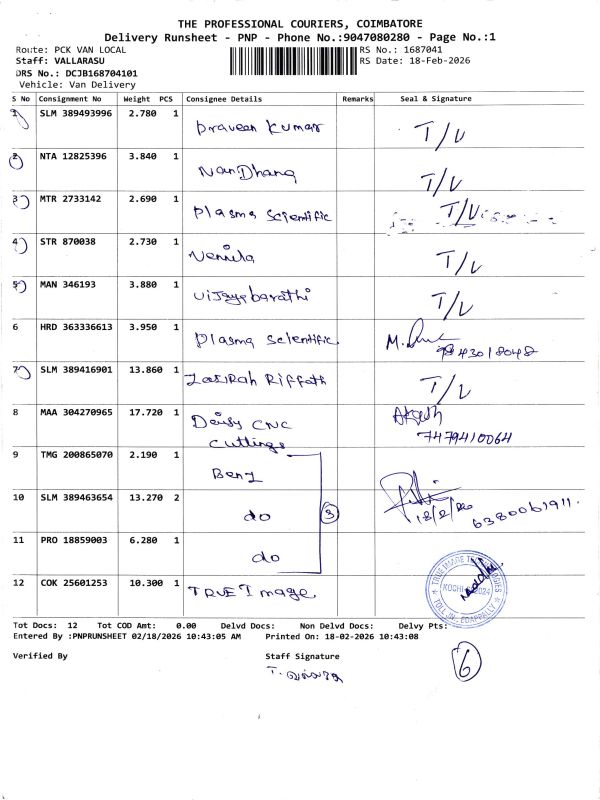 THE PROFESSIONAL COURIERS, COIMBATORE
Delivery Runsheet - PNP - Phone No.:9047080280 - Page No.:1
Route: PCK VAN LOCAL RS No.: 1687041
Staff: VALLARASU RS Date: 18-Feb-2026
DRS No.: DCJB168704101
Vehicle: Van Delivery
S No Consignment No Weight PCS Consignee Details Remarks Seal & Signature
1 SLM 389493996 2.780 1 Praveen Kumar T/L
2 NTA 12825396 3.840 1 NanDhana T/L
3 MTR 2733142 2.690 1 Plasma Scientific T/L
4 STR 870038 2.730 1 Nennila T/L
5 MAN 346193 3.880 1 Vijayabarathi T/L
6 HRD 363336613 3.950 1 Plasma Scientific
7 SLM 389416901 13.860 1 Riffath T/L
8 MAA 304270965 17.720 1 Daisy CNC Cuttings Akash
7479410064
9 TMG 200865070 2.190 1 Benz
10 SLM 389463654 13.270 2 do 3 18/2/26 6380061911.
11 PRO 18859003 6.280 1 do
12 COK 25601253 10.300 1 TRUE Image
Tot Docs: 12 Tot COD Amt: 0.00 Delvd Docs: Non Delvd Docs: Delvy Pts:
Entered By :PNPRUNSHEET 02/18/2026 10:43:05 AM Printed On: 18-02-2026 10:43:08
Verified By Staff Signature
6